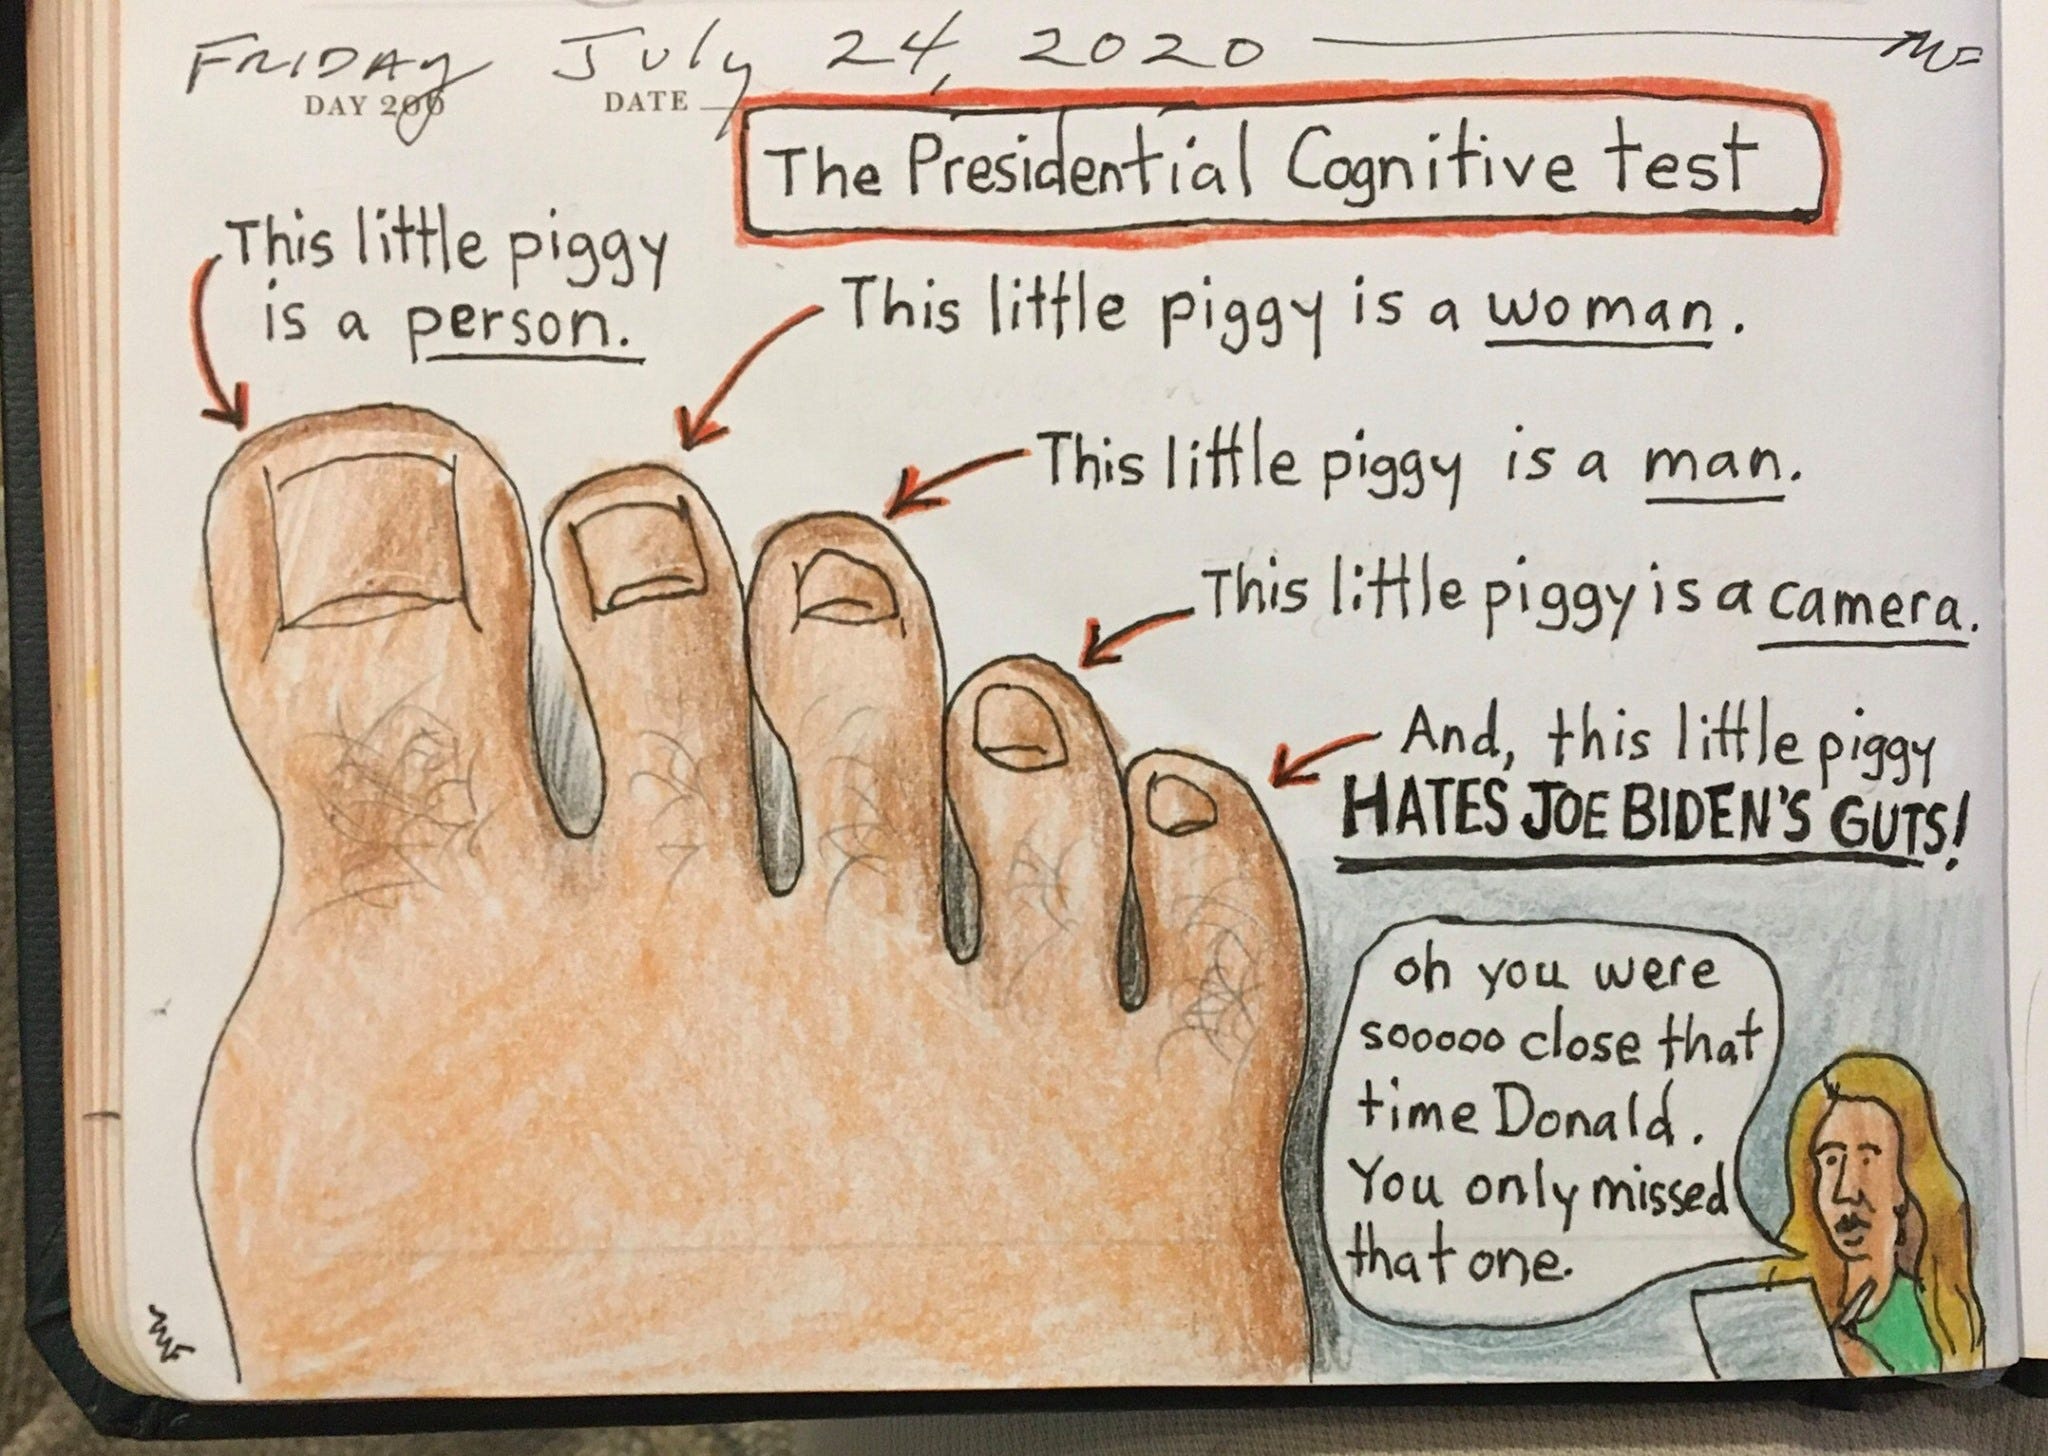 FRIDAY July 24, 2020
DAY 206 DATE
The Presidential Cognitive test
This little piggy
is a person.
This little piggy is a woman.
This little piggy is a man.
This little piggy is a camera.
And, this little piggy
HATES JOE BIDEN'S GUTS!
oh you were
sooooo close that
time Donald.
You only missed
that one.